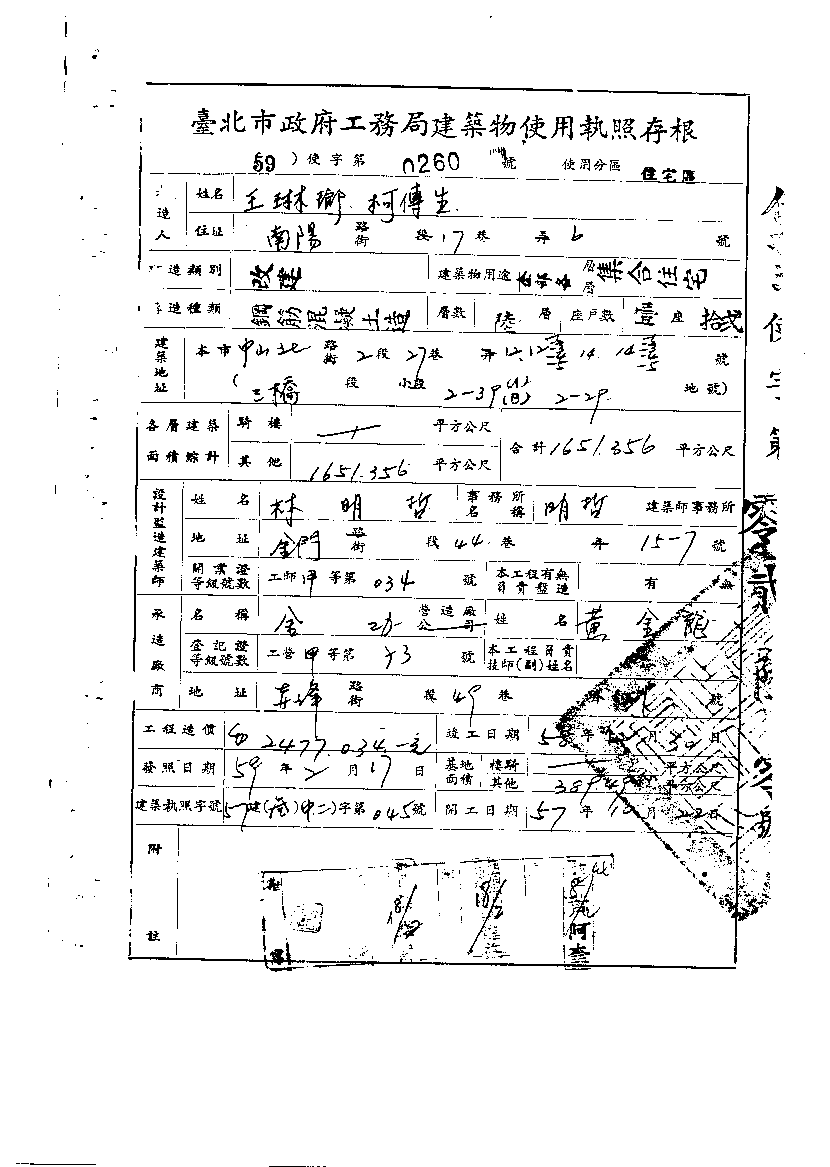 臺北市政府工務局建築物使用執照存根
59）使字第 0260 號 使用分區 住宅區
造人 姓名 王琳瑯 柯傳生
住址 南陽 路街 段 17 巷 弄 6 號
造類別 改建 建築物用途 層層 集合住宅
造種類 鋼筋混凝土造 層數 陸 層 座戶數 座 拾弍
建築地址 本市 中山北 路街 2 段 27 巷 弄 12. 14. 號
（三橋 段 小段 2-39 2-29 地號）
各層建築面積綜計 騎樓 平方公尺
其他 1651.356 平方公尺 合計 1651.356 平方公尺
設計監造建築師 姓名 林明哲 事務所名稱 明哲 建築師事務所
地址 金門 路街 段 44 巷 弄 15-7 號
開業證等級號數 工師 甲 等第 034 號 本工程有無負責監造 有 無
承造廠商 名稱 營造廠公司 姓名 黃金龍
登記證等級號數 工營 甲 等第 號 本工程負責技師(副)姓名
地址 路街 段 49 巷 號
工程造價 2477.034.-元 竣工日期 58 年 月 30 日
發照日期 59 年 2 月 17 日 基地面積 騎樓 平方公尺
其他 平方公尺
建築執照字號 57 建( )中二)字第 045 號 開工日期 57 年 10 月 22 日
附註